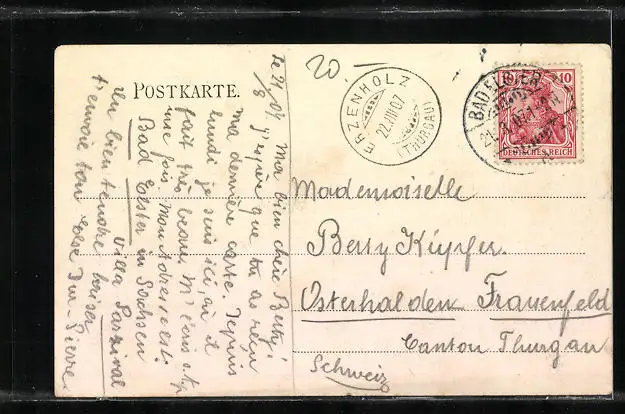 POSTKARTE.
20.-
ERZENHOLZ
22.III.07
(THURGAU)
BAD ELSTER
10 10
DEUTSCHES REICH
Mademoiselle
Betty Küpfer.
Osterhalden Frauenfeld
Canton Thurgau
Schweiz
Le 21/8 07. Ma bien chère Betty!
J'espère que tu as reçu
ma dernière carte. Depuis
lundi je suis ici où il
fait très beau. M'écris s.t.p.
une fois. Mon Adresse est:
Bad Elster in Sachsen
Villa Parzival
Un bien tendre baiser
t'envoie ton
Pierre.